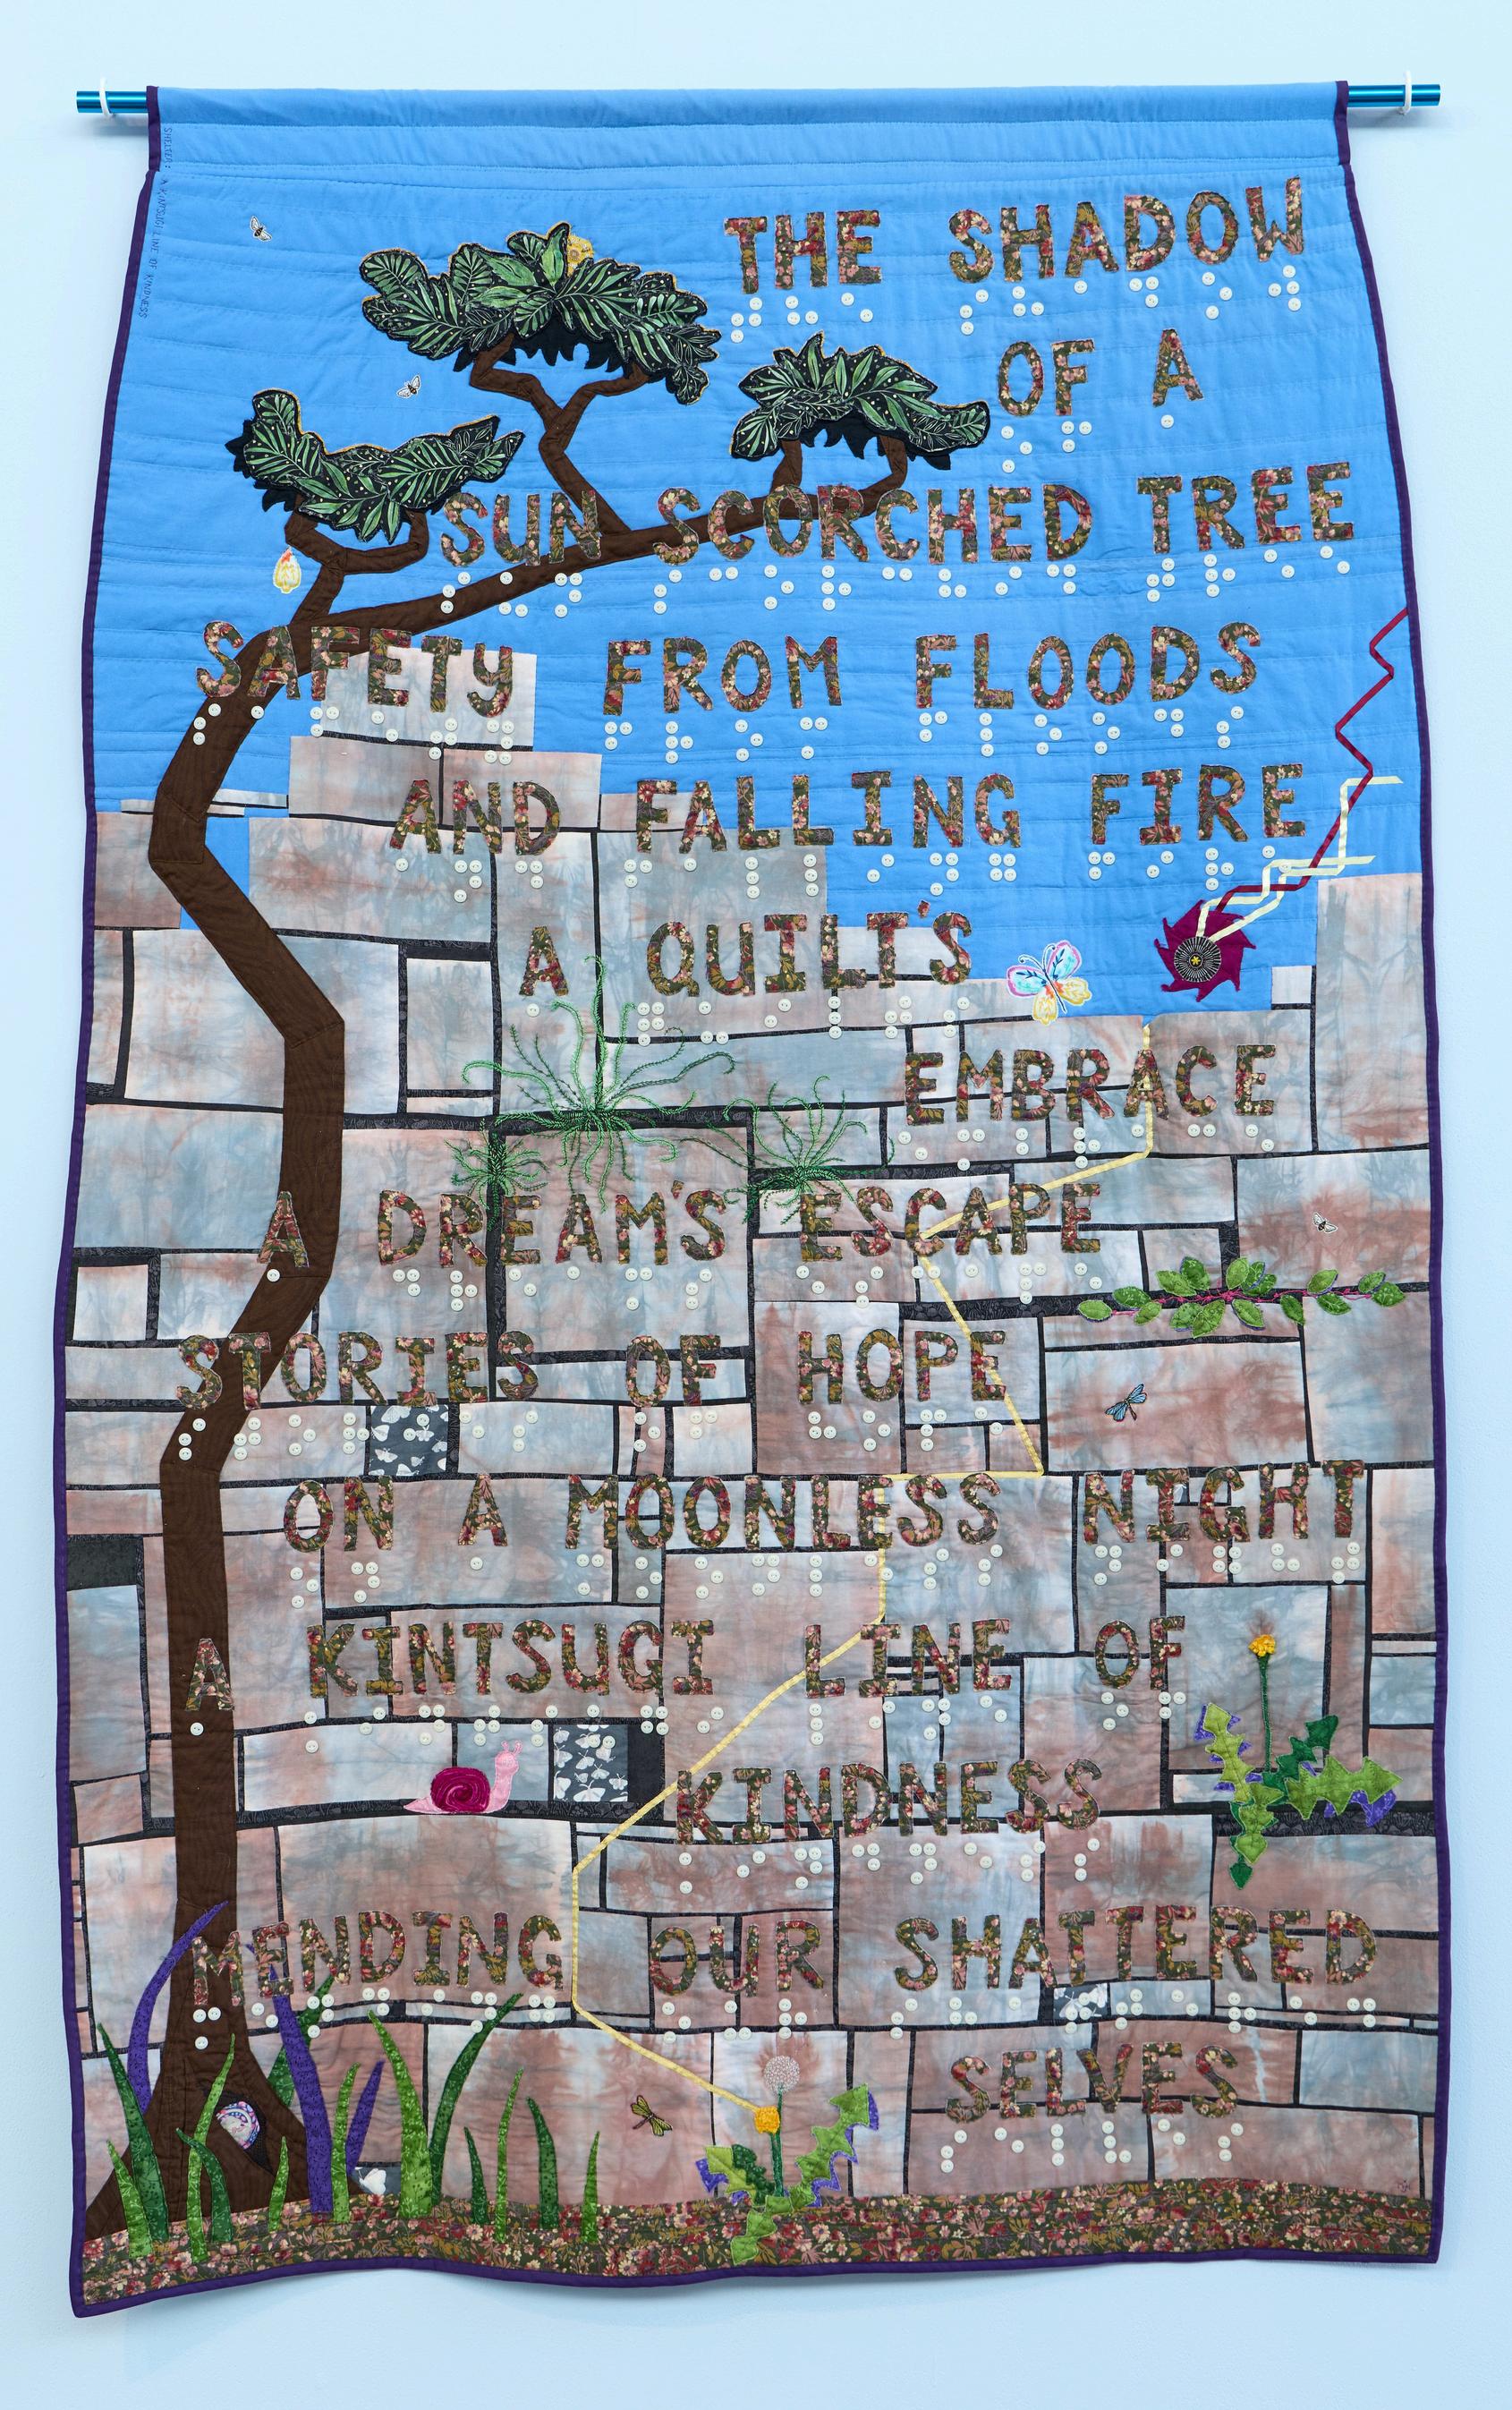 SHELTER: A KINTSUGI LINE OF KINDNESS
THE SHADOW
OF A
SUN SCORCHED TREE
SAFETY FROM FLOODS
AND FALLING FIRE
A QUILT'S
EMBRACE
A DREAM'S ESCAPE
STORIES OF HOPE
ON A MOONLESS NIGHT
A KINTSUGI LINE OF
KINDNESS
MENDING OUR SHATTERED
SELVES